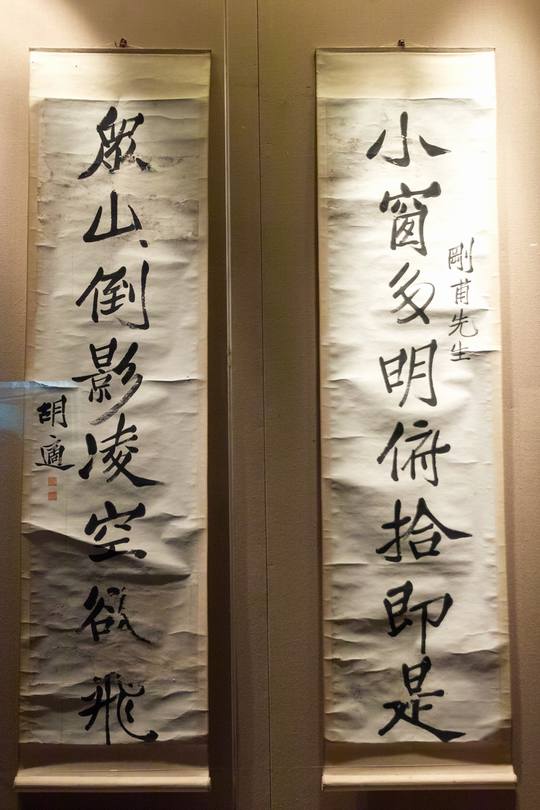 小窗多明俯拾即是
剛甫先生
眾山倒影凌空欲飛
胡適